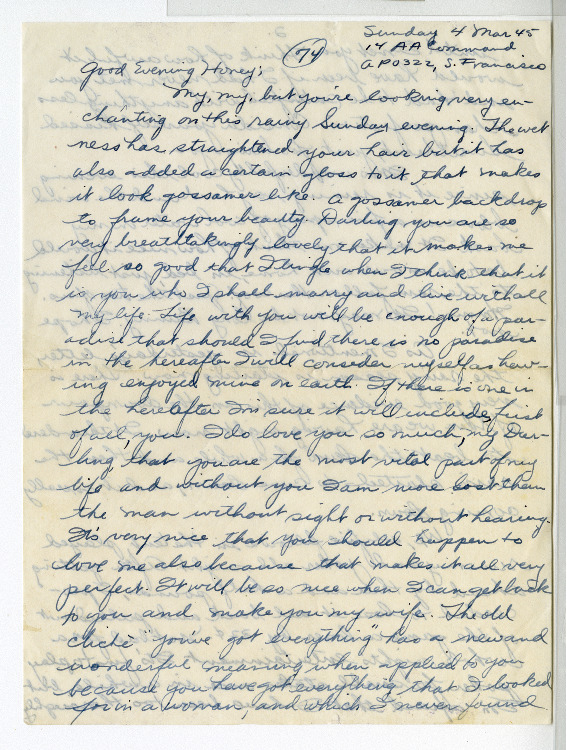 Sunday 4 Mar 45
(74)
14 AA Command
APO 322, S. Francisco
Good Evening Honey;
My, my, but you're looking very en-
chanting on this rainy Sunday evening. The wet
ness has straightened your hair but it has
also added a certain gloss to it that makes
it look gossamer like. A gossamer backdrop
to frame your beauty. Darling you are so
very breathtakingly lovely that it makes me
feel so good that I tingle when I think that it
is you who I shall marry and live with all
my life. Life with you will be enough of a par-
adise that should I find there is no paradise
in the hereafter I will consider myself as hav-
ing enjoyed mine on earth. If there is one in
the hereafter I'm sure it will include, first
of all, you. I do love you so much, my Dar-
ling, that you are the most vital part of my
life and without you I am more lost than
the man without sight or without hearing.
It's very nice that you should happen to
love me also because that makes it all very
perfect. It will be so nice when I can get back
to you and make you my wife. The old
cliché "you've got everything" has a new and
wonderful meaning when applied to you
because you have got everything that I looked
for in a woman, and which I never found